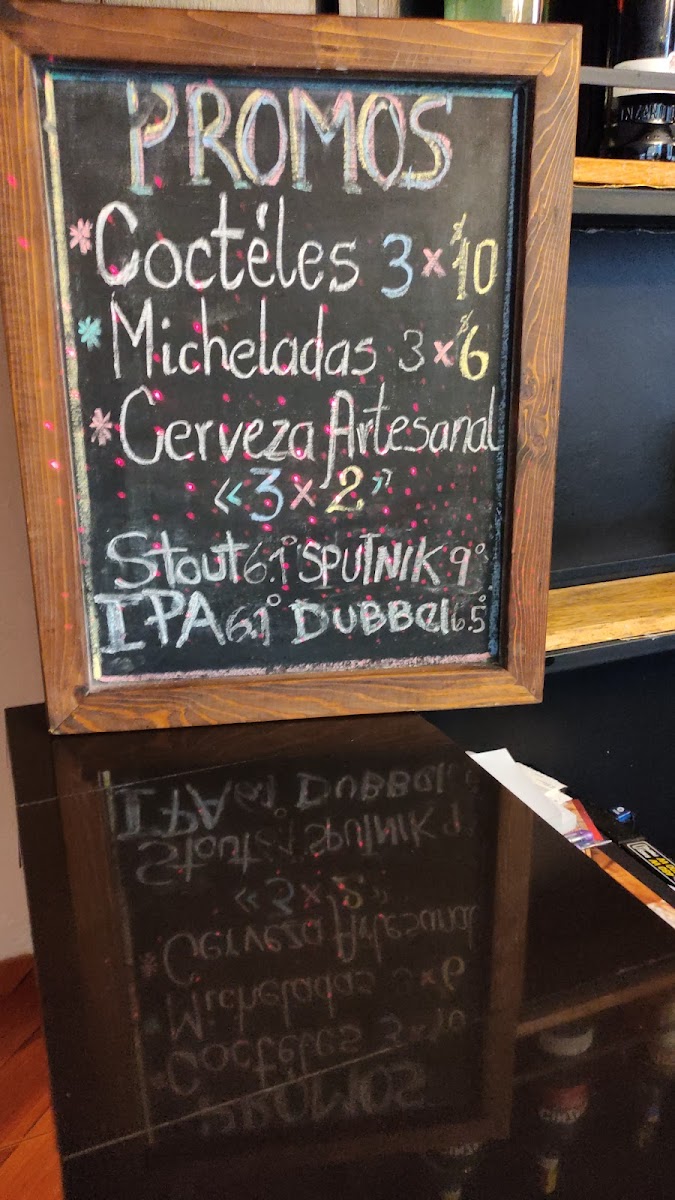 PROMOS
*Coctéles 3 x $10
*Micheladas 3 x $6
*Cerveza Artesanal
«3 x 2"
Stout 6.1° SPUTNIK 9°
IPA 6.1° DUBBEL 6.5°